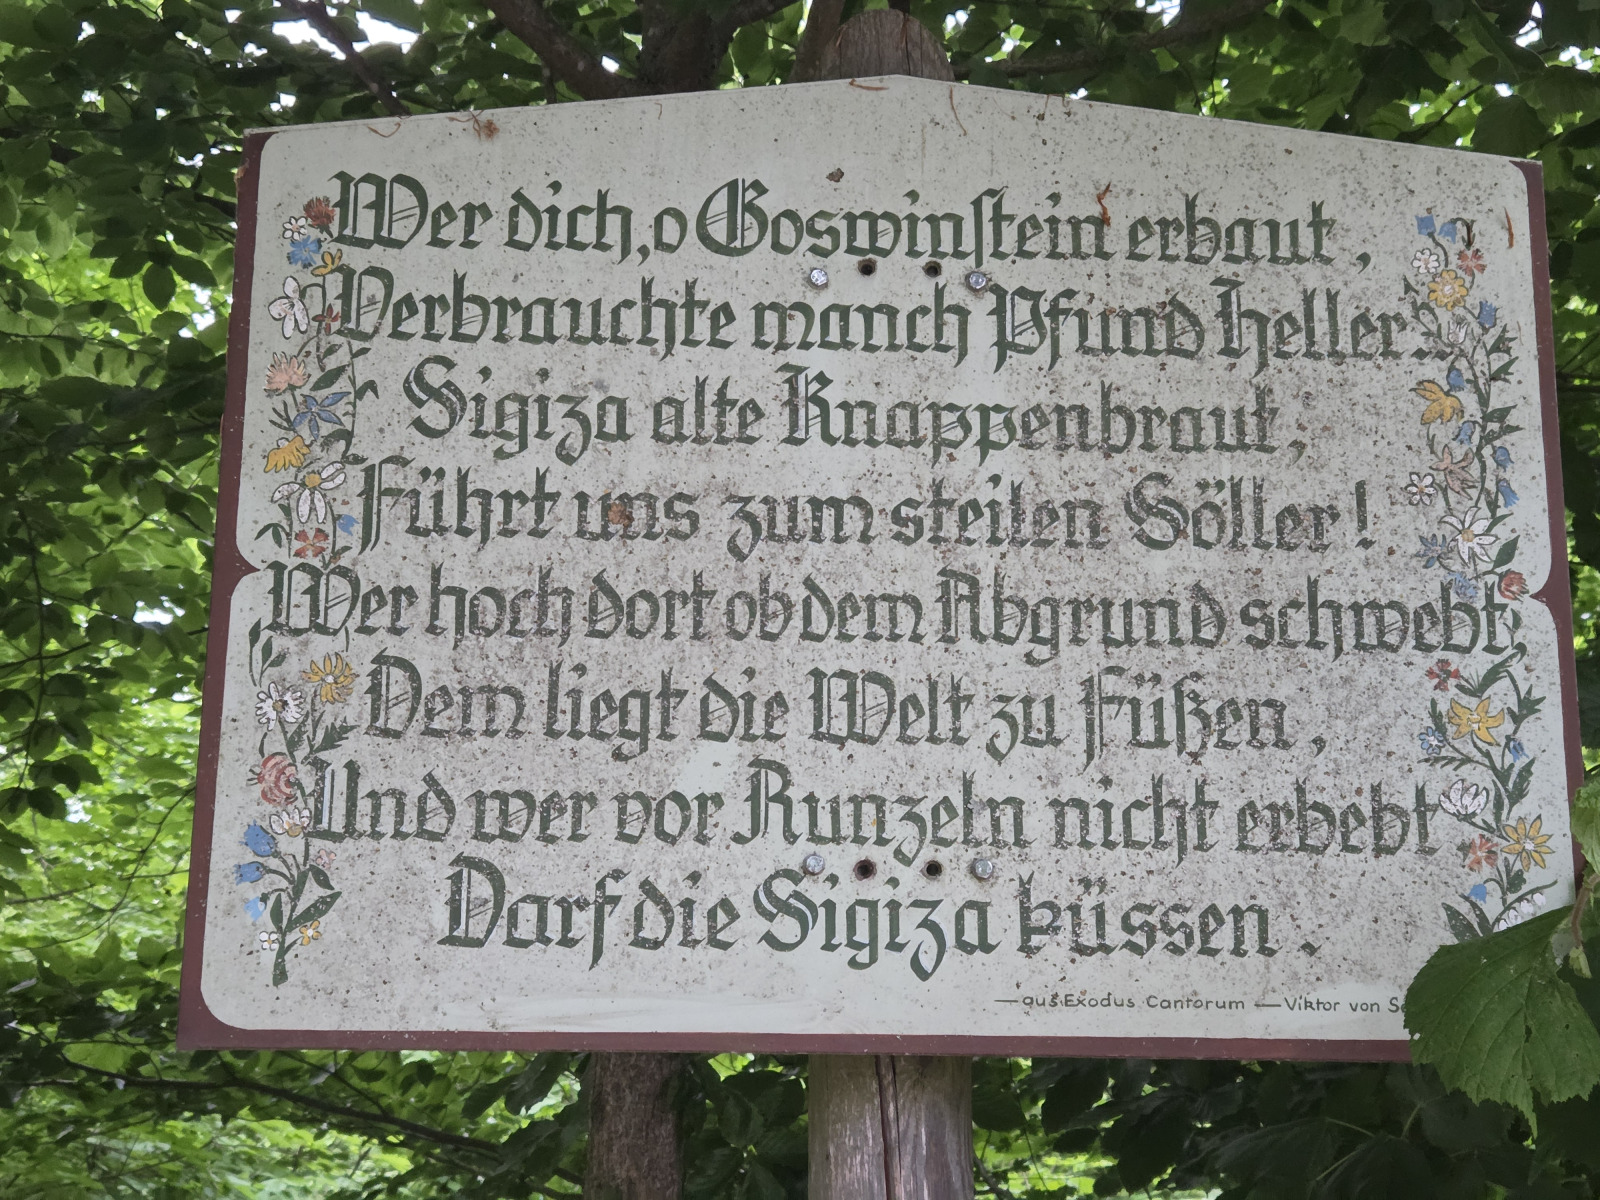 Wer dich, o Goswinstein erbaut,
Verbrauchte manch Pfund Heller.
Sigiza alte Knappenbraut,
Führt uns zum steilen Söller!
Wer hoch dort ob dem Abgrund schwebt,
Dem liegt die Welt zu Füßen,
Und wer vor Runzeln nicht erbebt
Darf die Sigiza küssen.
— aus Exodus Cantorum — Viktor von